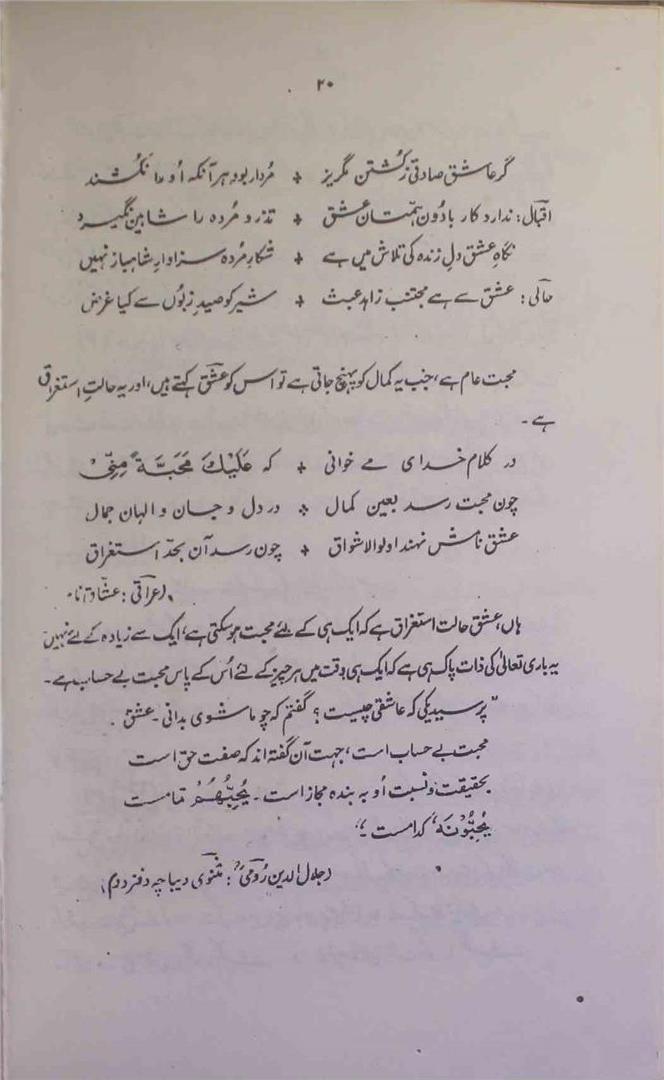 ۲۰
گر عاشق صادقی ز کُشتن مگریز + مُردار بود ہر آنکہ اُو را نکُشند
اقبال: ندارد کار با دُون ہمّتان عشق + تذرو مُردہ را شاہین نگیرد
نگاہِ عشق دلِ زندہ کی تلاش میں ہے + شکارِ مُردہ سزاوارِ شاہباز نہیں
حالی: عشق سے ہے مجتنب زاہد عبث + شیر کو صیدِ زبُوں سے کیا غرض
محبت عام ہے، جب یہ کمال کو پہنچ جاتی ہے تو اس کو عشق کہتے ہیں، اور یہ حالتِ استغراق
ہے۔
در کلام خدای مے خوانی + کہ عَلَیْكَ مَحَبَّةً مِنِّیْ
چون محبت رسد بعین کمال + در دل و جان و الہان جمال
عشق نامش نہند اولوالاشواق + چون رسد آن بحدّ استغراق
(عراقی: عشاق نامہ)
ہاں، عشق حالت استغراق ہے کہ ایک ہی کے لئے محبت ہو سکتی ہے، ایک سے زیادہ کے لئے نہیں
یہ باری تعالیٰ کی ذات پاک ہی ہے کہ ایک ہی وقت میں ہر چیز کے لئے اُس کے پاس محبت بے حساب ہے۔
"پرسید یکی کہ عاشقی چیست؟ گفتم کہ چو ما شوی بدانی۔ عشق
محبت بے حساب است، جہت آن گفتہ اند کہ صفت حق است
بحقیقت و نسبت اُو بہ بندہ مجاز است۔ یُحِبُّهُمْ تمامست
یُحِبُّوْنَهٗ کدامست۔"
(جلال الدین رُومیؒ: مثنوی دیباچہ دفتر دوم)